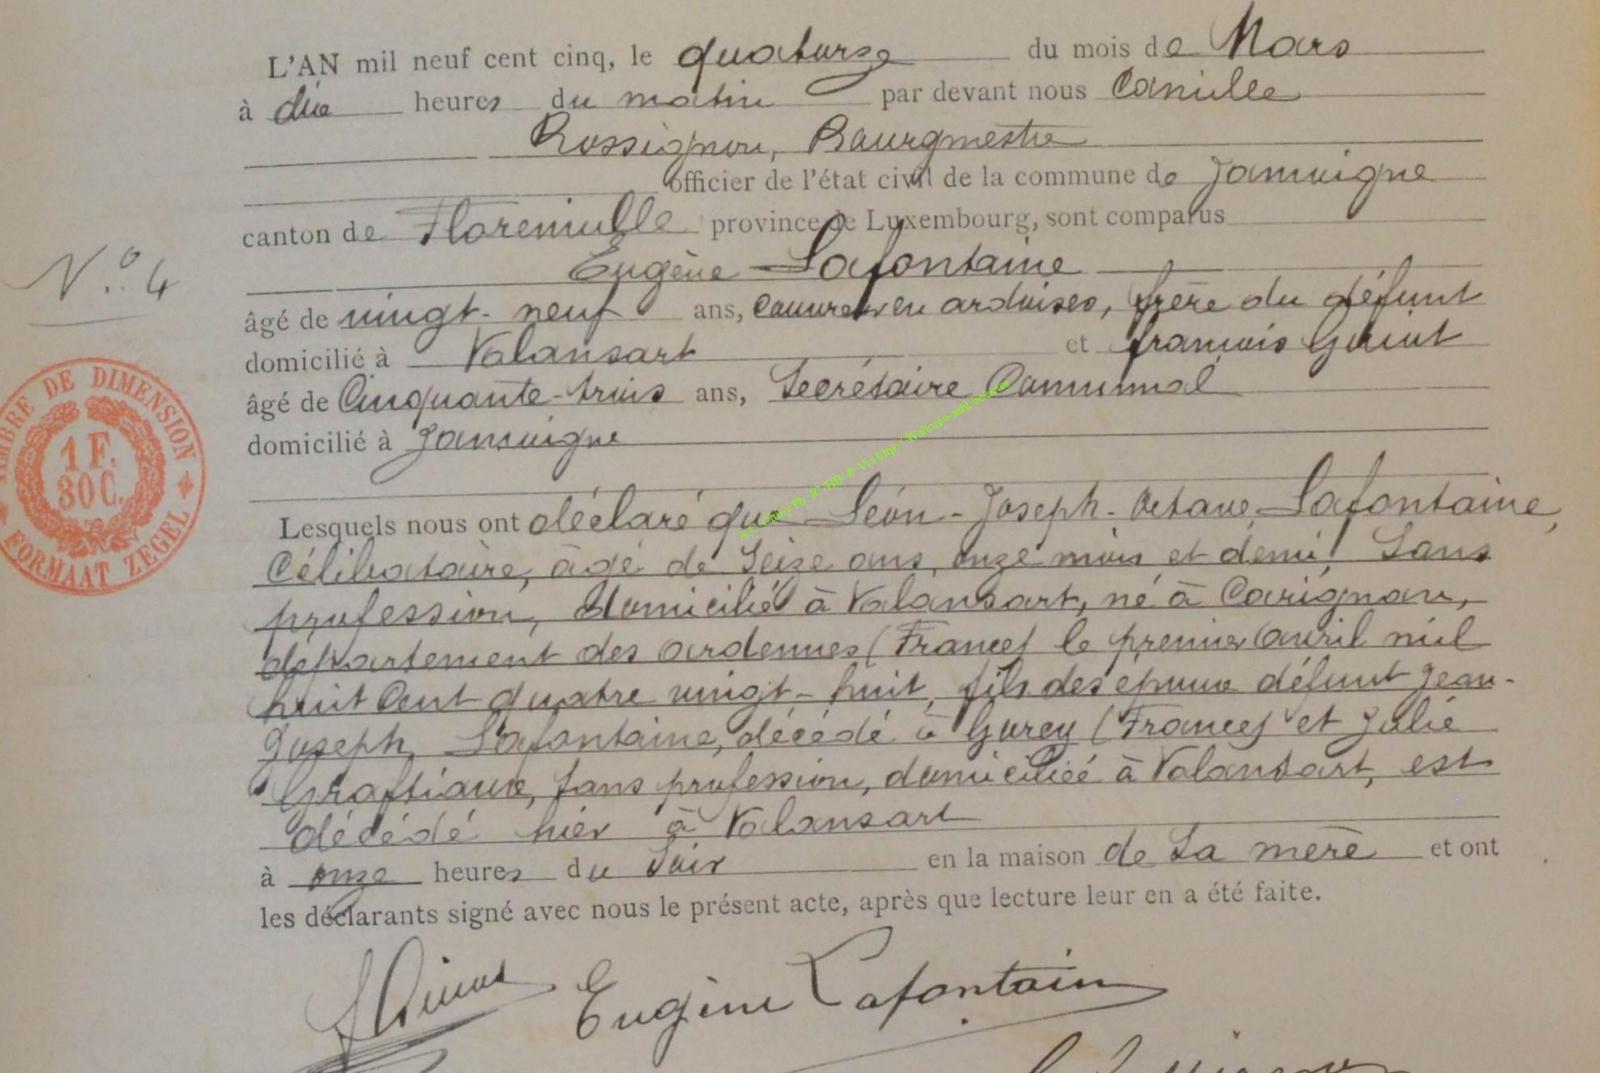 L'AN mil neuf cent cinq, le quatorze du mois de Mars
à dix heures du matin par devant nous Camille
Rossignon, Bourgmestre
officier de l'état civil de la commune de Jamoigne
canton de Florenville province de Luxembourg, sont comparus
N.° 4
Eugène Lafontaine
âgé de vingt-neuf ans, couvreur en ardoises, frère du défunt
domicilié à Valansart et françois
âgé de Cinquante-trois ans, Secrétaire Communal
domicilié à Jamoigne
TIMBRE DE DIMENSION
1 F.
30 C.
FORMAAT ZEGEL
Lesquels nous ont déclaré que Léon-Joseph-Octave Lafontaine,
Célibataire, âgé de Seize ans, onze mois et demi, Sans
profession, domicilié à Valansart, né à Carignan,
département des ardennes (France) le premier avril mil
huit Cent quatre vingt-huit, fils des époux défunt Jean-
Joseph Lafontaine, décédé à Gorcy (France) et Julie
sans profession, domiciliée à Valansart, est
décédé hier à Valansart
à onze heures du Soir en la maison de Sa mère et ont
les déclarants signé avec nous le présent acte, après que lecture leur en a été faite.
Eugène Lafontaine